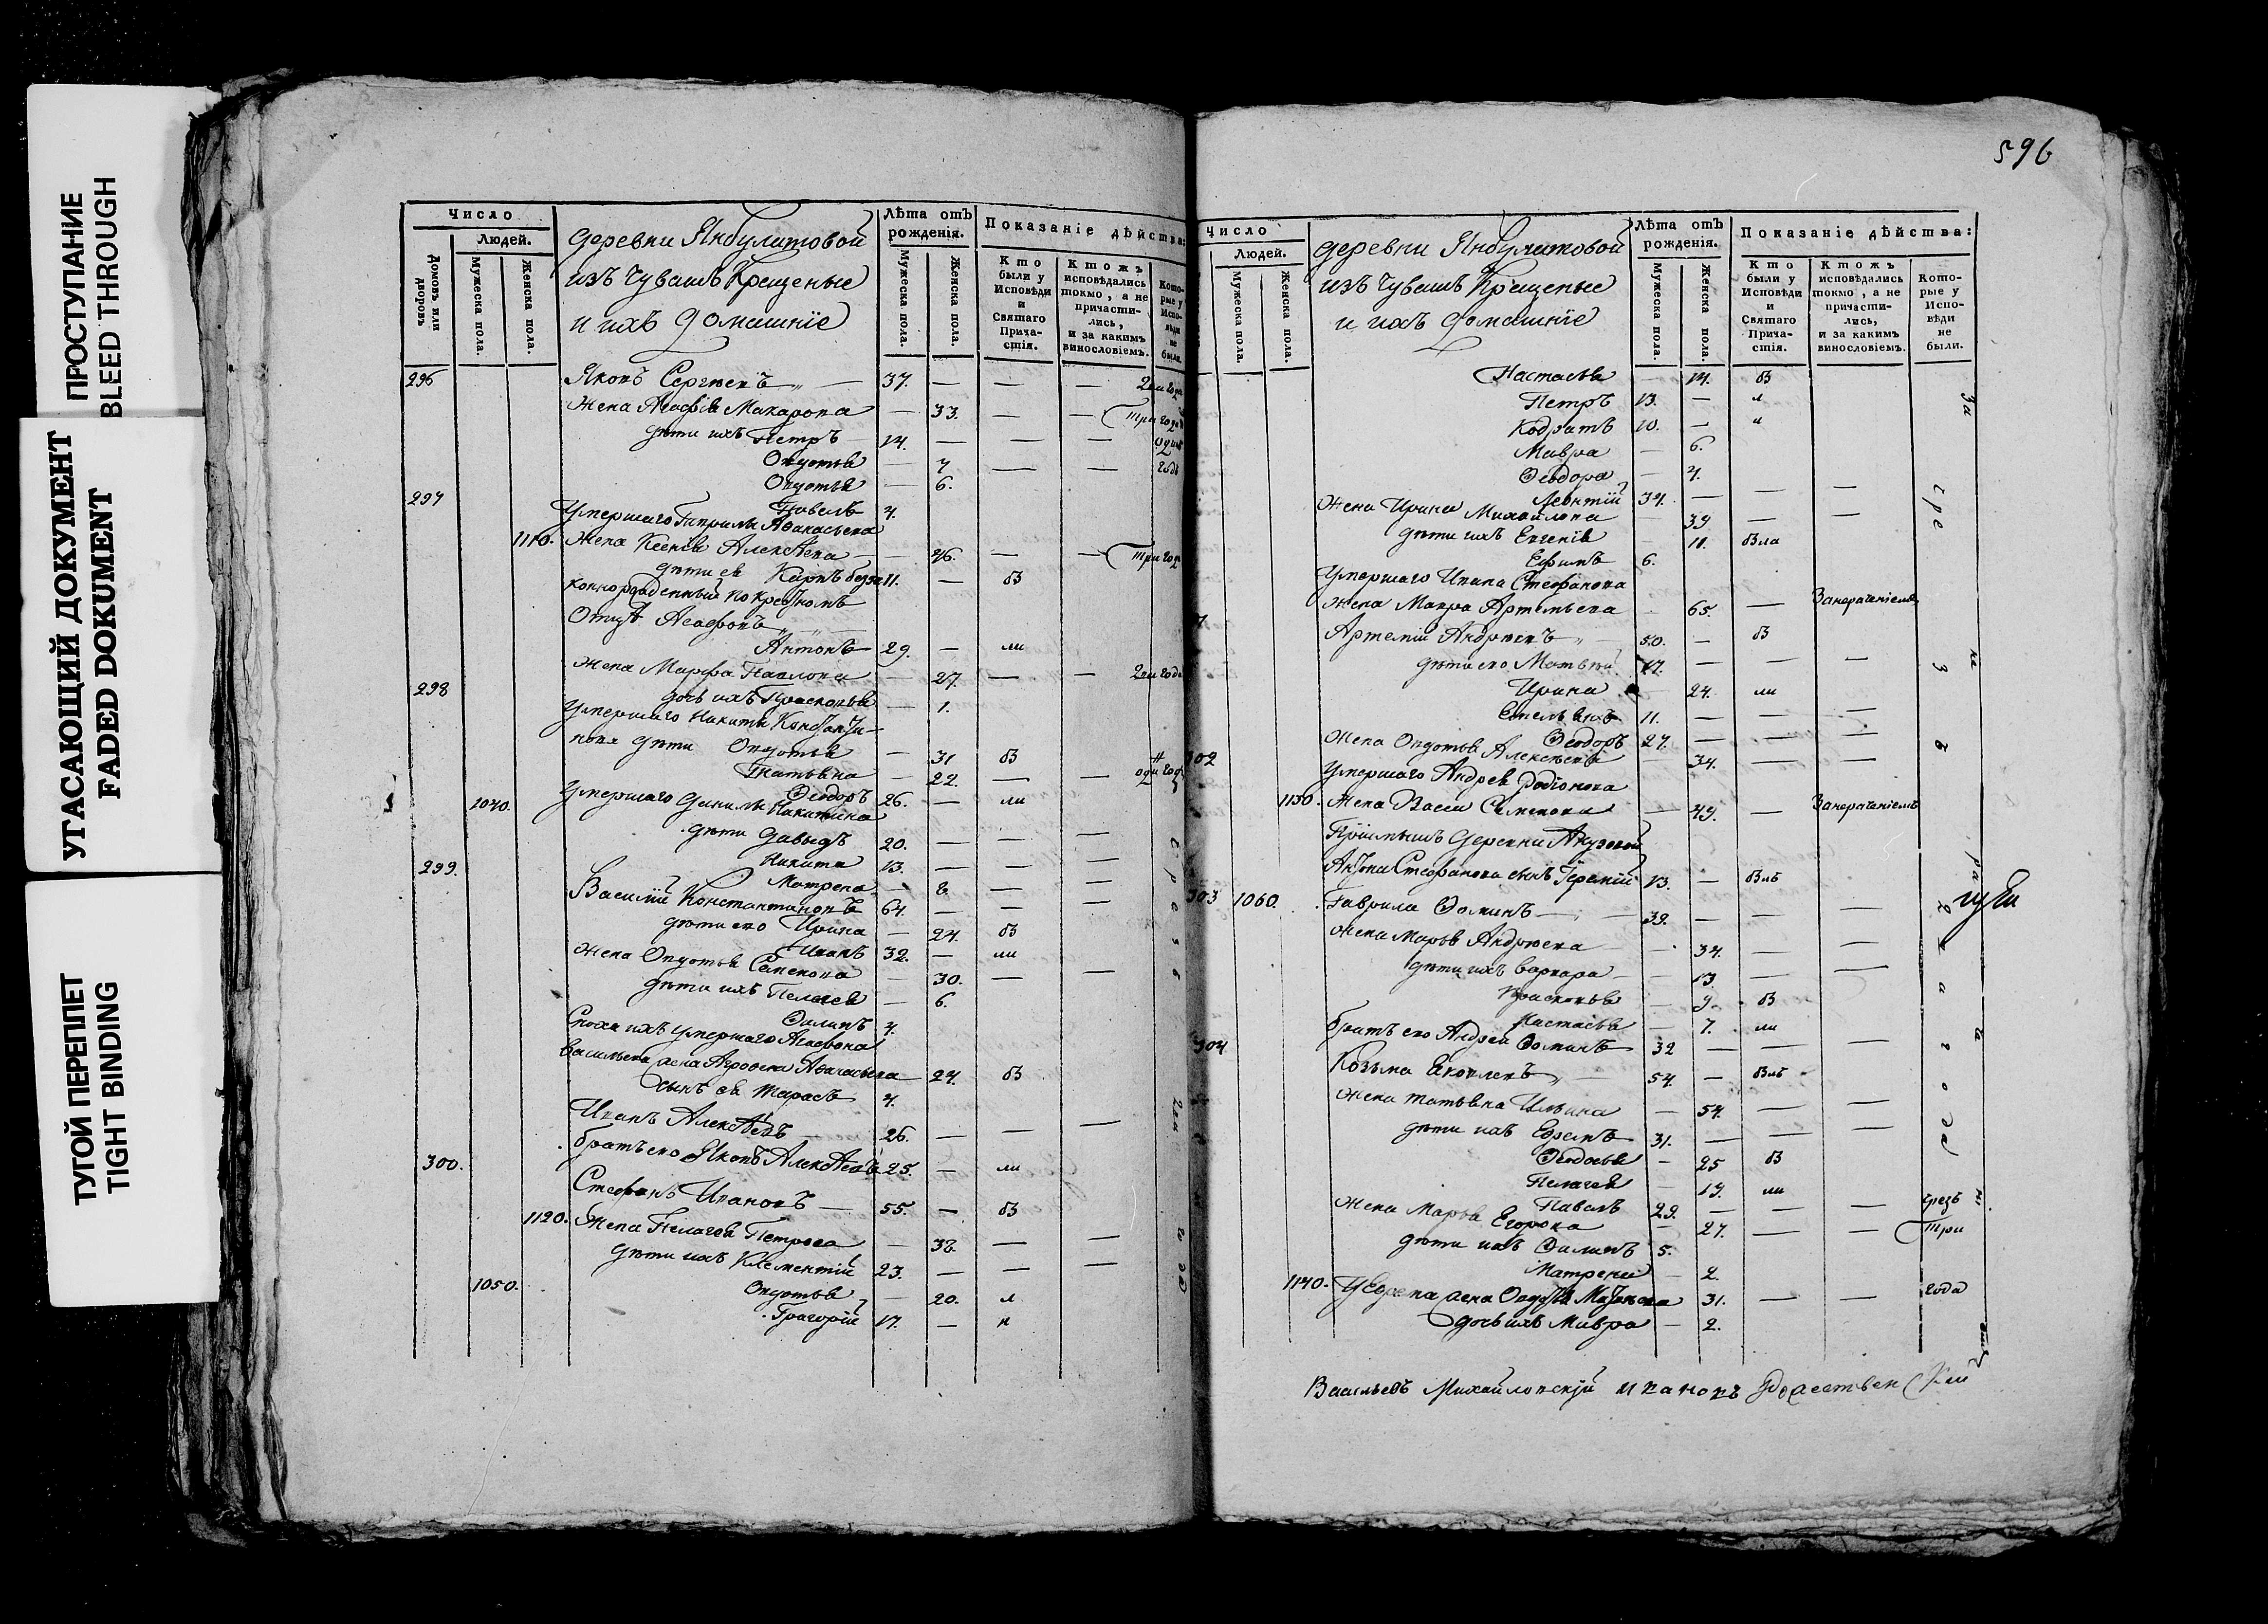 ПРОСТУПАНИЕ
BLEED THROUGH
УГАСАЮЩИЙ ДОКУМЕНТ
FADED DOKUMENT
ТУГОЙ ПЕРЕПЛЕТ
TIGHT BINDING
Число
Людей.
Домовъ или дворовъ
Мужеска пола.
Женска пола.
деревни Янбулатовой
изъ Чувашъ Крещеные
и ихъ домашнїе
Лѣта отъ рожденія.
Мужеска пола.
Женска пола.
Показаніе дѣйства:
Кто были у Исповѣди и Святаго Прича-стія.
Ктожъ исповѣдались токмо, а не причасти-лись, и за какимъ винословіемъ.
Кото-рые у Испо-вѣди не были.
296 Яковъ Сергѣевъ 37. — — —
Жена Агафія Макарова — 33. — — три года
дѣти ихъ Петръ 14. — — — одинъ
Овдотья — 7 — — годъ
Овдотья — 6.
297 Павелъ 4.
Умершаго Гаврилы Афанасьева
1110. Жена Ксенія Алексѣева — 46. — — три года
дѣти ея Карпъ 11. — бы
Антонъ 29. — ли
Жена Марфа Павлова — 27. — — два года
298 дочь ихъ Прасковья — 1.
Умершаго Никиты Константи-
нова дѣти Овдотья — 31 бы
Татьяна — 22. — —
Ѳеодоръ 26. — ли
1040. Умершаго Данилы Никитина
дѣти Давыдъ 20. — — —
Никита 13. — —
299. Матрена — 8. — —
Василій Константиновъ 64. — — —
дѣти его Ирина — 24. бы
Иванъ 32. — ли
Жена Овдотья Семенова — 30. — —
дѣти ихъ Пелагея — 6.
Филипъ 4.
Сноха ихъ умершаго Агафона
Васильева жена Афанасьева — 24. бы
сынъ ея Тарасъ 4.
Иванъ Алексѣевъ 26. — — —
братъ его Яковъ Алексѣевъ 25. — ли
300. Стефанъ Ивановъ 55. — бы
1120. Жена Пелагея Петрова — 38. — —
дѣти ихъ Клементій 23. — — —
1050. Овдотья — 20. л
Григорій 17. — и
596
Число
Людей.
Мужеска пола.
Женска пола.
деревни Янбулатовой
изъ Чувашъ Крещеные
и ихъ домашнїе
Лѣта отъ рожденія.
Мужеска пола.
Женска пола.
Показаніе дѣйства:
Кто были у Исповѣди и Святаго Прича-стія.
Ктожъ исповѣдались токмо, а не причасти-лись, и за какимъ винословіемъ.
Кото-рые у Испо-вѣди не были.
Настасья — 14. бы
Петръ 13. — л
Кодратъ 10. — и
Мавра — 6.
Ѳеодора — 4.
Леонтій 34. — — —
Жена Ирина Михайлова — 39 — —
дѣти ихъ Евгенія — 11. была
Ефимъ 6.
Умершаго Ивана Стефанова
Жена Мавра Артемьева — 65. —
Артемій Андреевъ 50. — бы
дѣти его Матвѣй 17. — — —
Ирина — 24. ли
Емельянъ 11. — — —
Ѳеодоръ 27. — — —
302 Жена Овдотья Алексѣева — 34. — —
Умершаго Андрея Родіонова
1130. Жена Васса Семенова — 49. —
Антона Стефанова сынъ 13. — былъ
303 1060. Гаврила Ѳоминъ 39. — — —
Жена Марья Андреева — 34. — —
дѣти ихъ Варвара — 13. — —
Прасковья — 9 бы
Настасья — 7. ли
304 братъ его Андрей Ѳоминъ 32 — — —
Козьма Яковлевъ 54. — былъ
Жена Татьяна Ильина — 54. — —
дѣти ихъ Ефремъ 31. — — —
Ѳеодосья — 25 бы
Пелагея — 19. ли
Павелъ 29. — — — чрезъ
Жена Марья Егорова — 27. — — три
дѣти ихъ Филипъ 5.
Матрена — 2.
1140. У Ефрема жена Овдотья Матвѣева 31. — — года
дочь ихъ Мавра — 2.
Васильевъ Михайловскій Ивановъ